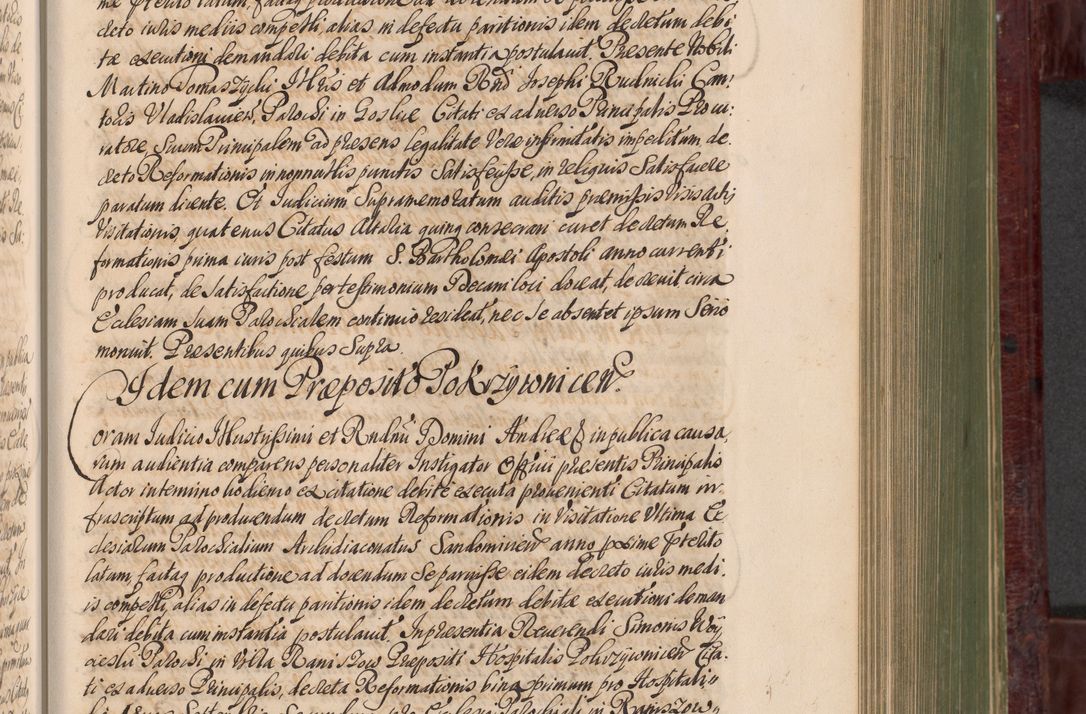 creto iuris mediis compelli, alias in defectu paritionis idem decretum debi
tæ executioni demandari debita cum instantia postulavit. Presente Nobili
Martino Tomaszyski Illris et Admodum Rnd Josephi Rudnicki Can
toris Vladislavien, Parochi in Goslice Citati ex adverso Principalis Procu:
ratore, suum Principalem ad presens legalitate veræ infirmitatis impeditum de
creto Reformationis in nonnullis punctis satisfecisse, in reliquis satisfacere
paratum dicente. Et Iudicium Supramemoratum auditis præmissis visis actis
Visitationis, quatenus Citatus Altaria quinq consecrari curet decretum Re
formationis prima iuris post festum S. Bartholomæi Apostoli anno currenti
producat, de satisfactione per testimonium Decani loci doceat, decrevit circa
Ecclesiam suam Parochialem continuo resideat, nec se absentet ipsum serio
monuit. Presentibus quibus supra.
Idem cum Præposito Pokrzywnicen.
Coram Iudicio Illustrissimi et Rndni Domini Andreæ in publica causa
rum audientia comparens personaliter Instigator Officii presentis Principalis
Actor in termino hodierno ex citatione debite executa provenienti Citatum in
frascriptum ad producendum decretum Reformationis in Visitatione Ultima Ec
clesiarum Parochialium Archidiaconatus Sandomirien anno proxime præterito
latam, factaq productione ad docendum se paruisse eidem decreto iuris medi
is compelli, alias in defectu paritionis idem decretum debitæ executioni deman
dari debita cum instantia postulavit. In presentia Reverendi Simonis
Parochi in Villa Raniszow Præpositi Hospitalis Pokrzywnicen Cita
ti ex adverso Principalis, decreta Reformationis bina primum pro Hospitali